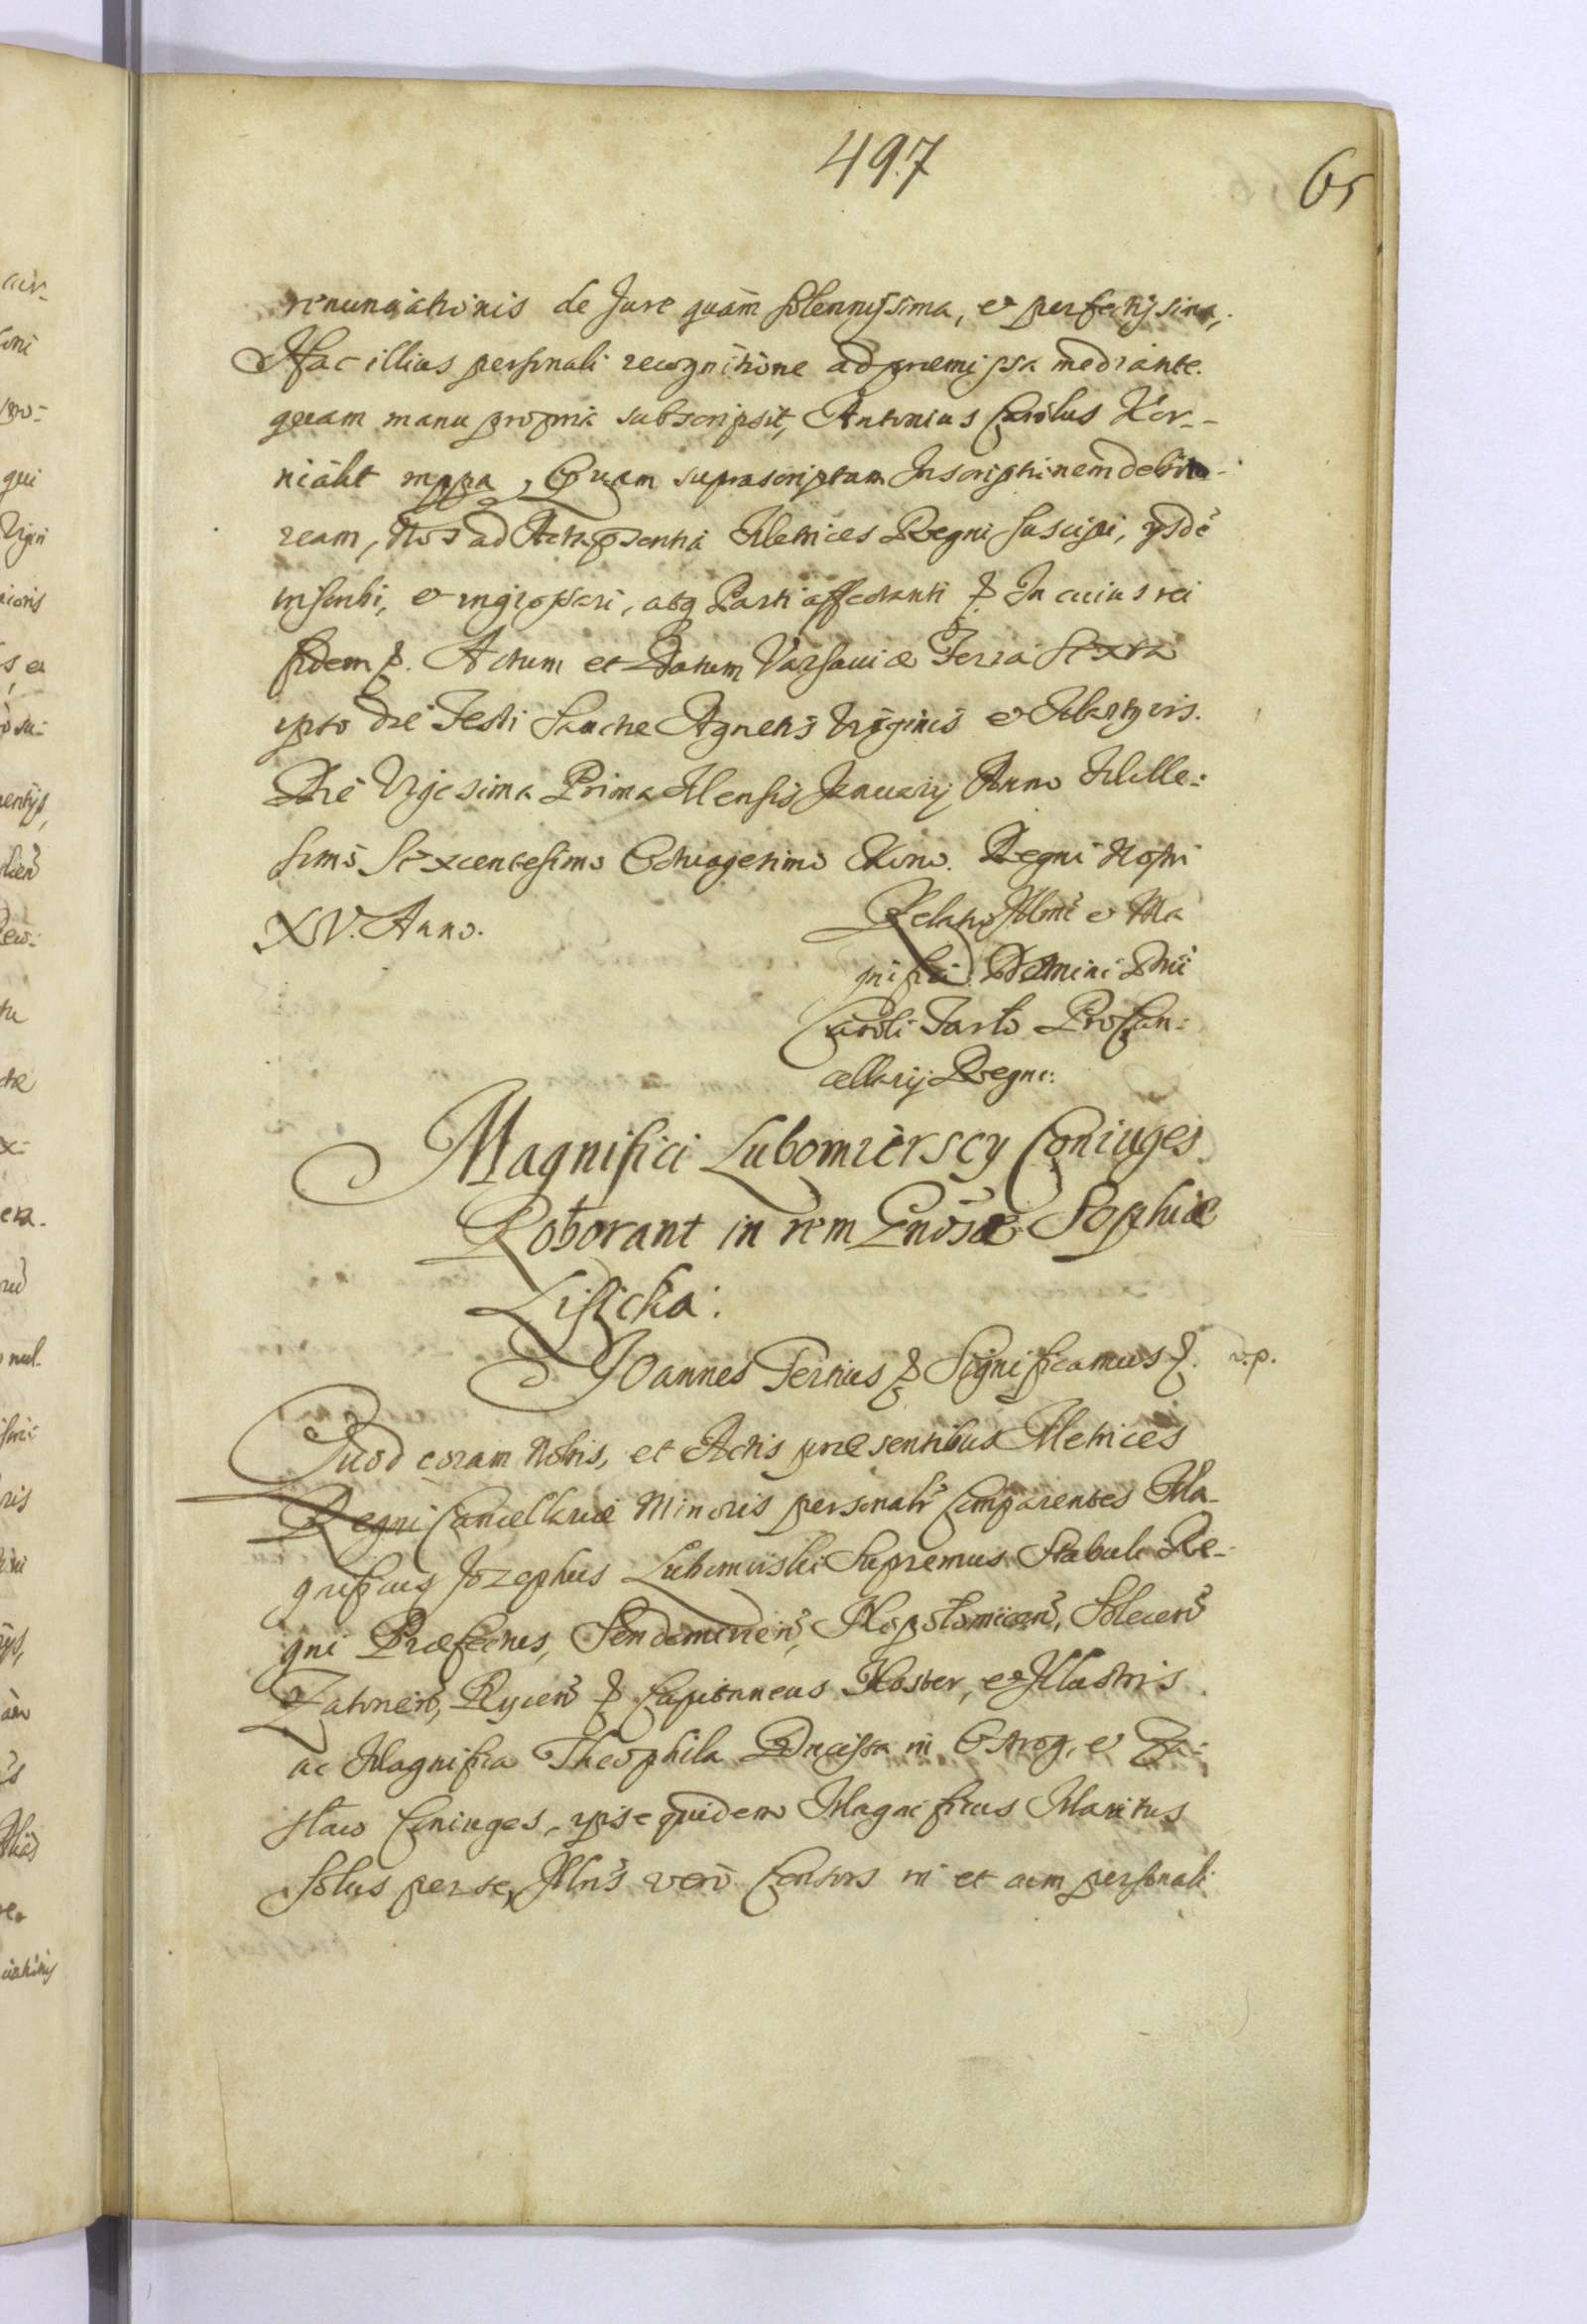 497
65
renunciationis de Jure quam solennissima, et perfectissima,
Hac illius personali recognitione ad premissa mediante.
quam manu propria subscripsit, Antonius Carolus Kor-
niakt mppa, Quam suprascriptam Inscriptionem debito-
ream, Nos ad Acta psentia Metrices Regni suscipi, ysdē
inscribi, et ingrossari, atq Parti affectanti & In cuius rei
fidem &. Actum et Datum Varsaviæ Feria Sexta
ipso die Festi Sanctæ Agnetis Virginis et Martyris.
Die Vigesima Prima Mensis January Anno Mille:
simo Sexcentesimo Octuagesimo Nono. Regni Nostri
XV. Anno.
Relatio Illmi et Ma
gnifici Domini Dni
Caroli Tarło ProCan:
cellarij Regni:
Magnifici Lubomierscy Coniuges
Roborant in rem Gnosæ Sophiæ
Lisicka:
Joannes Tertius & Significamus &. r.p.
Quod coram Nobis, et Actis præsentibus Metrices
Regni Cancellariæ Minoris personalr comparentes Ma-
gnificus Jozephus Lubomirski Supremus Stabuli Re-
gni Præfectus, Sendomirien, Ropstomicen, Solecen
Zatorien, Rycen & Capitaneus Noster, et Illustris
ac Magnifica Theophila Ducissa in Ostrog, et Za:
sław Coniuges, ipse quidem Magnificus Maritus
solus per se, Illris vero Consors in et cum personali